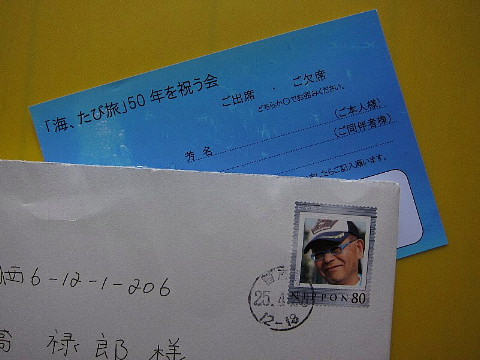 「海、たび旅」50年を祝う会
ご出席 ・ ご欠席
どちらか○でお囲みください。
芳名
(ご本人様)
(ご同伴者様)
らご記入願います。
NIPPON 80
25.4
12-18
西6-12-1-206
禄郎 様